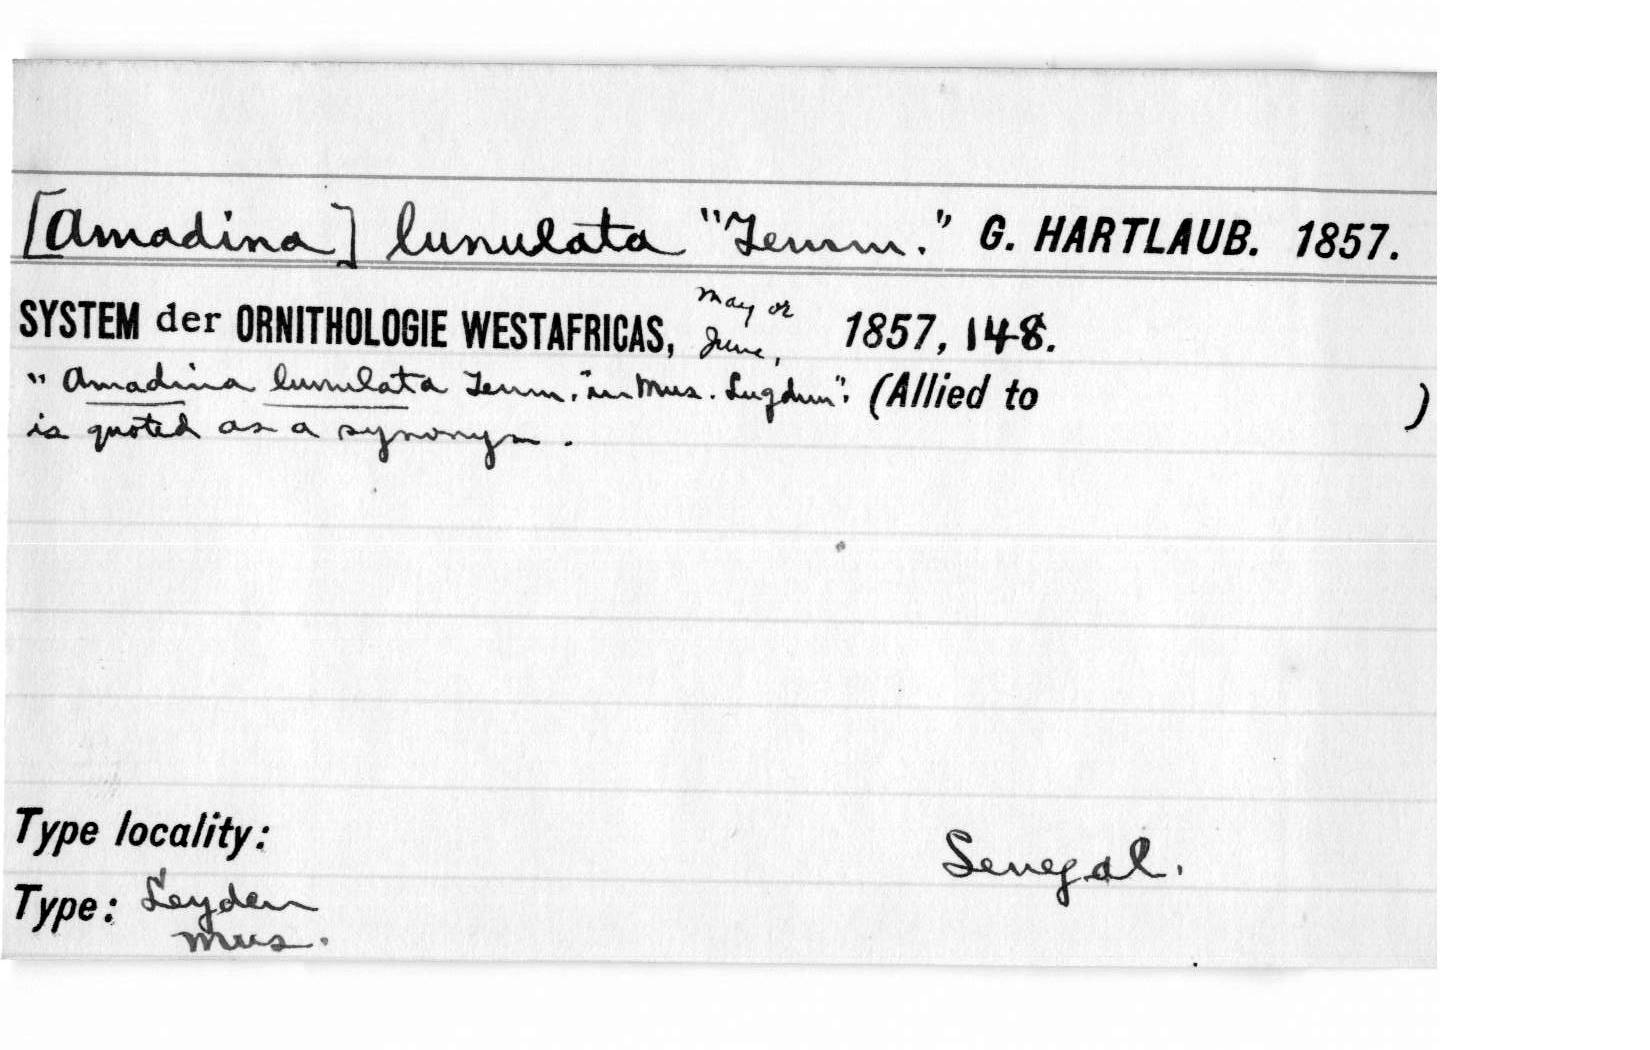 [Amadina] lunulata "Temm." G. HARTLAUB. 1857.
SYSTEM der ORNITHOLOGIE WESTAFRICAS, May or June, 1857, 148.
"Amadina lunulata Temm. "in Mus. Lugdun". (Allied to )
is quoted as a synonym.
Type locality: Senegal.
Type: Leyden
Mus.